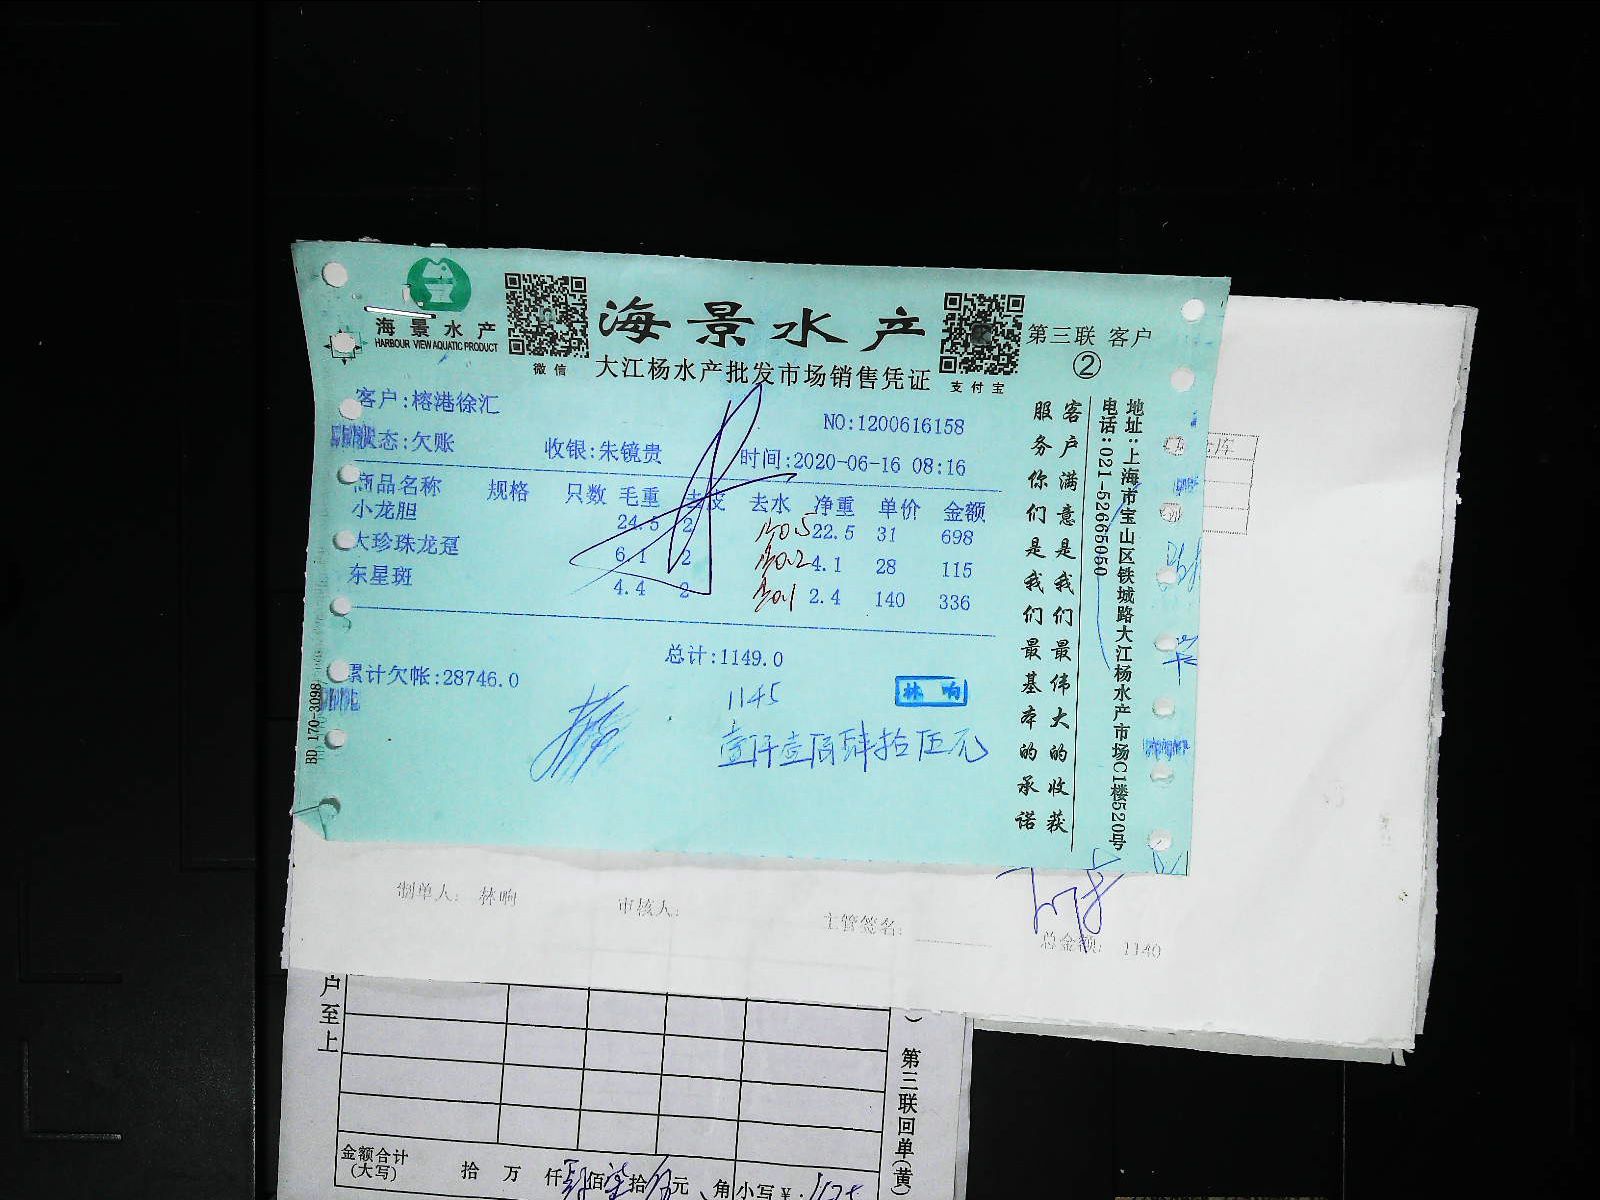 海景水产
HARBOUR VIEW AQUATIC PRODUCT
微信
海景水产
大江杨水产批发市场销售凭证
支付宝
第三联 客户
②
客户:榕港徐汇
NO:1200616158
状态:欠账 收银:朱镜贵 时间:2020-06-16 08:16
商品名称 规格 只数 毛重 去皮 去水 净重 单价 金额
小龙胆 24.5 2 0.5 22.5 31 698
大珍珠龙趸 6.1 2 0.2 4.1 28 115
东星斑 4.4 2 0.1 2.4 140 336
总计:1149.0
累计欠帐:28746.0
1145
林响
壹仟壹佰肆拾伍元
BD 170-3098
客户满意是我们最伟大的收获
服务你们是我们最基本的承诺
地址:上海市宝山区铁城路大江杨水产市场C1楼520号
电话:021-52665050
制单人: 林响 审核人: 主管签名: 总金额: 1140
户至上
第三联回单(黄)
金额合计
(大写) 拾 万 仟 佰 拾 元 角 小写¥: